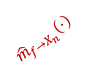 m̂_{f→x_n}(·)